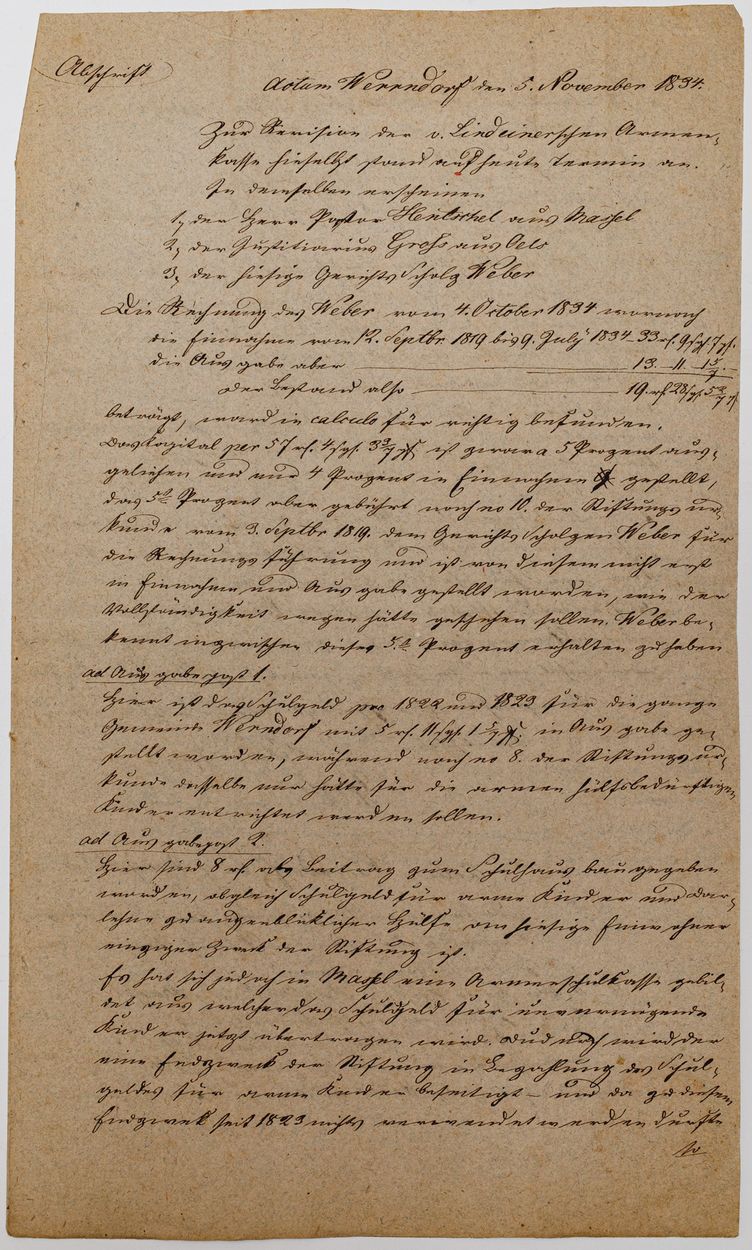 Abschrift
Actum Werrndorf den 5. November 1834.
Zur Revision der v. Lindeinerschen Armen-
kasse hieselbst stand auf heute Termin an.
In demselben erscheinen
1, der Herr Pastor Hentschel aus Massel
2, der Justitiarius Gross aus Oels
3, der hiesige Gerichts Scholz Weber
Die Rechnung des Weber vom 4. October 1834 wornach
die Einnahme vom 12. Septbr 1819 bis 9. July 1834 33 rf. 9 sgl. 7 pf.
die Ausgabe aber 13. 11. 1 5/7.
der Bestand also 19. rf. 28 sgl. 5 2/7 pf
beträgt, ward in calculo für richtig befunden.
Das Capital per 57 rf. 4 sgl. 3 3/7 pf ist zwar a 5 Prozent aus-
geliehen und nur 4 Prozent in Einnahme gestellt,
das 5te Prozent aber gebührt nach no 10. der Stiftungs ur-
kunde vom 3. Septbr 1819. dem Gerichts Scholzen Weber für
die Rechnungsführung und ist von diesem nicht erst
in Einnahme und Ausgabe gestellt worden, wie der
Vollständigkeit wegen hätte geschehen sollen. Weber be-
kennt inzwischen dieses 5te Prozent erhalten zu haben
ad Ausgabepost 1.
Hier ist das Schulgeld pro 1822 und 1823 für die ganze
Gemeinde Werndorf mit 5 rf. 11 sgl. 1 5/7 pf. in Ausgabe ge-
stellt worden, während nach no 8. der Stiftungs ur-
kunde dasselbe nur hätte für die armen hülfsbedürftigen
Kinder entrichtet werden sollen.
ad Ausgabepost 2.
Hier sind 8 rf. als Beitrag zum Schulhausbau gegeben
worden, obgleich Schulgeld für arme Kinder und Dar-
lehne zu augenblicklicher Hilfe an hiesige Einwohner
einziger Zweck der Stiftung ist.
Es hat sich jedoch in Massel eine Armeschulkasse gebil-
det aus welcher das Schulgeld für unvermögende
Kinder jetzt übertragen wird. Dadurch wird der
eine Endzweck der Stiftung in Bezahlung des Schul-
geldes für arme Kinder beseitigt – und da zu diesem
Endzwek seit 1823 nichts verwendet werden durfte
so